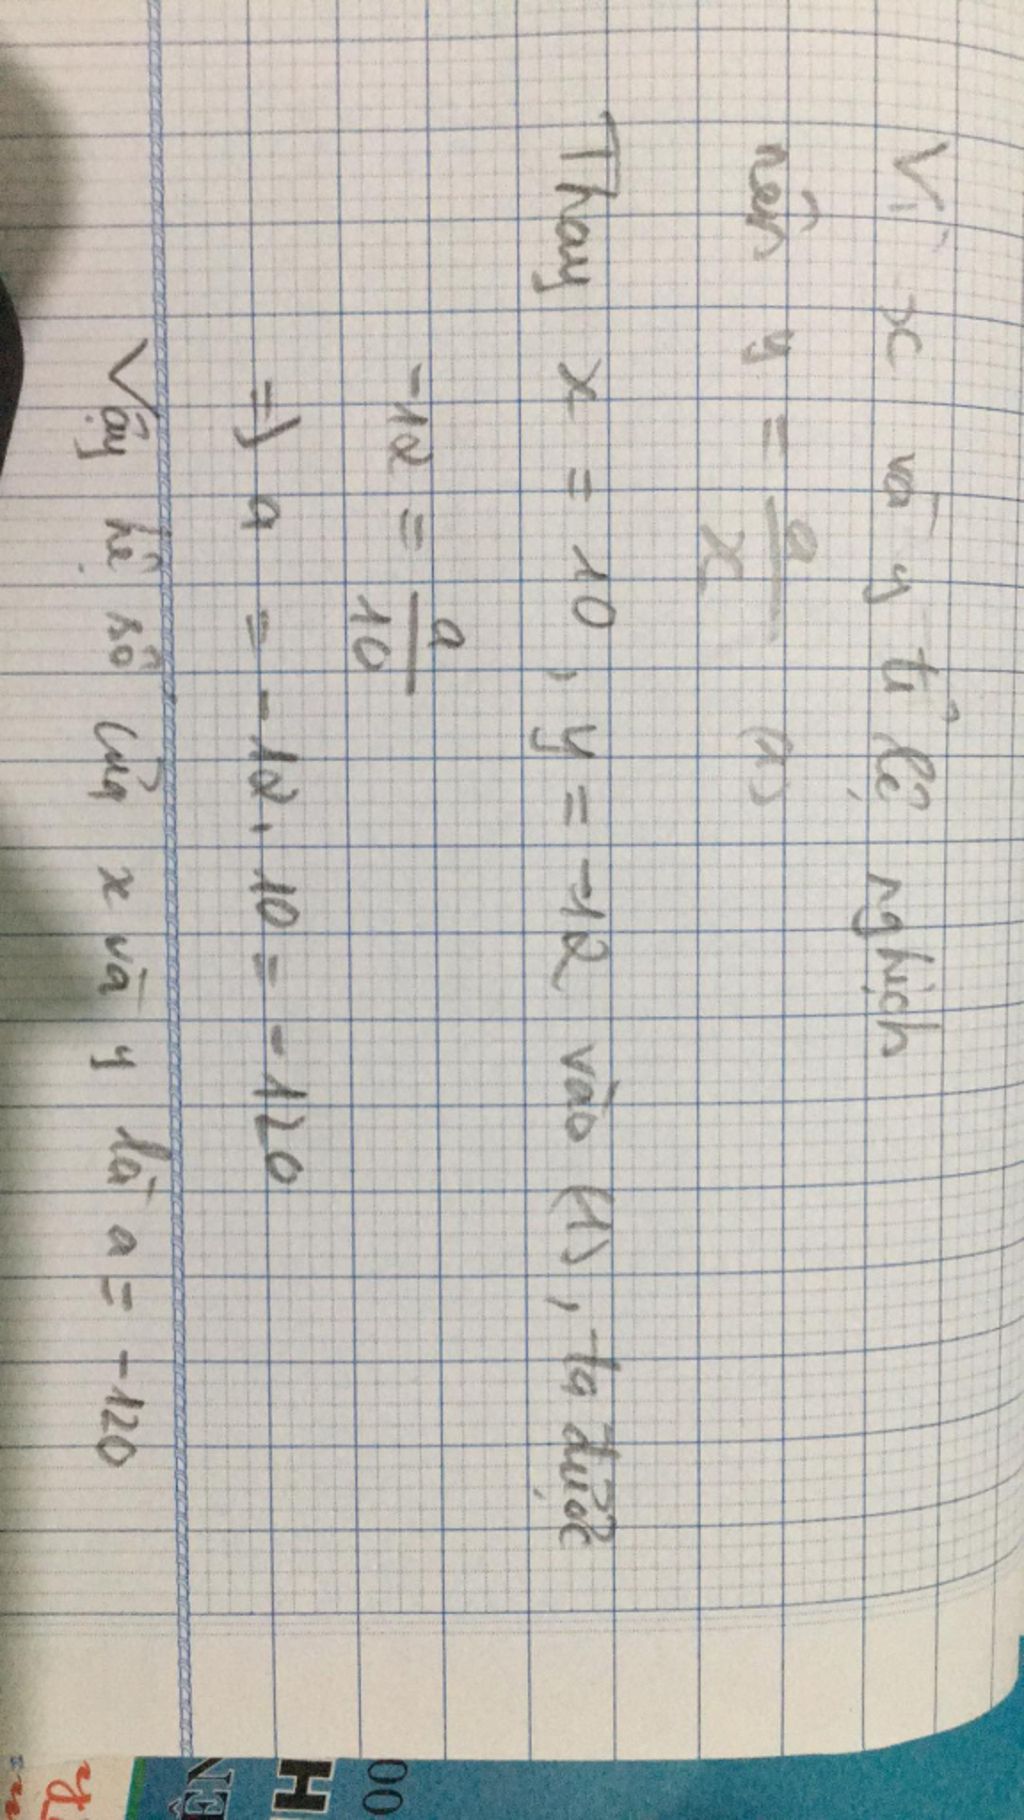 Vì x và y tỉ lệ nghịch
nên y = a/x (1)
Thay x = 10, y = -12 vào (1), ta được
-12 = a/10
=> a = -12.10 = -120
Vậy hệ số của x và y là a = -120
00
H
ÊN